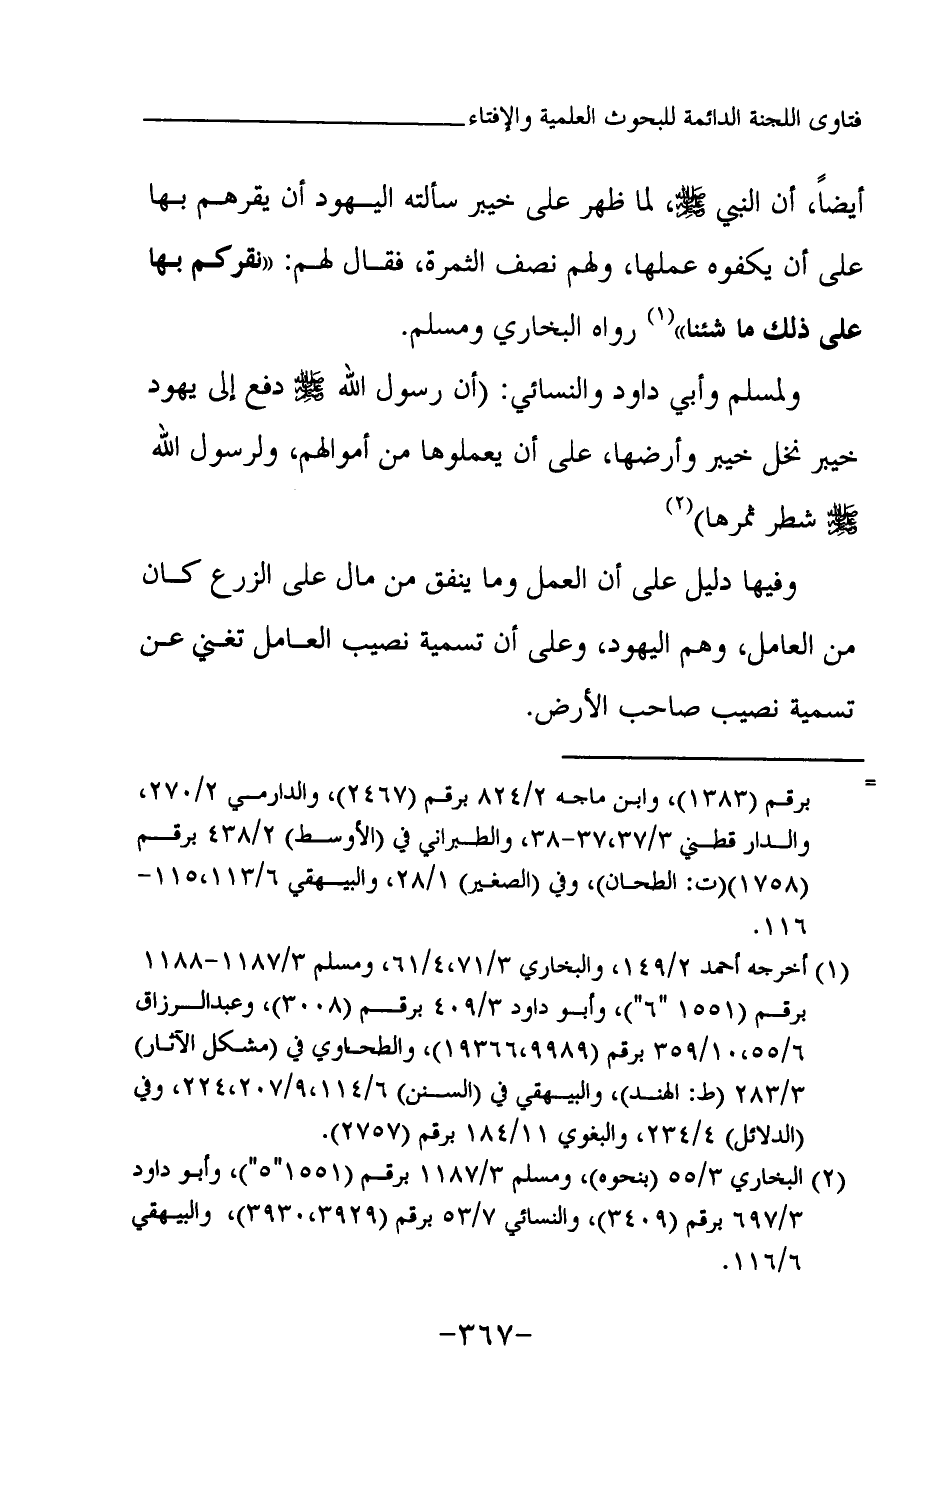 فتاوى اللجنة الدائمة للبحوث العلمية والإفتاء
أيضاً، أن النبي ﷺ، لما ظهر على خيبر سألته اليهود أن يقرهم بها
على أن يكفوه عملها، ولهم نصف الثمرة، فقال لهم: «نقركم بها
على ذلك ما شئنا»(١) رواه البخاري ومسلم.
ولمسلم وأبي داود والنسائي: (أن رسول الله ﷺ دفع إلى يهود
خيبر نخل خيبر وأرضها، على أن يعملوها من أموالهم، ولرسول الله
ﷺ شطر ثمرها)(٢)
وفيها دليل على أن العمل وما ينفق من مال على الزرع كان
من العامل، وهم اليهود، وعلى أن تسمية نصيب العامل تغني عن
تسمية نصيب صاحب الأرض.
= برقم (١٣٨٣)، وابن ماجه ٨٢٤/٢ برقم (٢٤٦٧)، والدارمي ٢٧٠/٢،
والدار قطني ٣٧،٣٧/٣-٣٨، والطبراني في (الأوسط) ٤٣٨/٢ برقم
(١٧٥٨)(ت: الطحان)، وفي (الصغير) ٢٨/١، والبيهقي ١١٥،١١٣/٦-
١١٦.
(١) أخرجه أحمد ١٤٩/٢، والبخاري ٦١/٤،٧١/٣، ومسلم ١١٨٧/٣-١١٨٨
برقم (١٥٥١ "٦")، وأبو داود ٤٠٩/٣ برقم (٣٠٠٨)، وعبدالرزاق
٣٥٩/١٠،٥٥/٦ برقم (١٩٣٦٦،٩٩٨٩)، والطحاوي في (مشكل الآثار)
٢٨٣/٣ (ط: الهند)، والبيهقي في (السنن) ٢٢٤،٢٠٧/٩،١١٤/٦، وفي
(الدلائل) ٢٣٤/٤، والبغوي ١٨٤/١١ برقم (٢٧٥٧).
(٢) البخاري ٥٥/٣ (بنحوه)، ومسلم ١١٨٧/٣ برقم (١٥٥١"٥")، وأبو داود
٦٩٧/٣ برقم (٣٤٠٩)، والنسائي ٥٣/٧ برقم (٣٩٣٠،٣٩٢٩)، والبيهقي
١١٦/٦.
-٣٦٧-